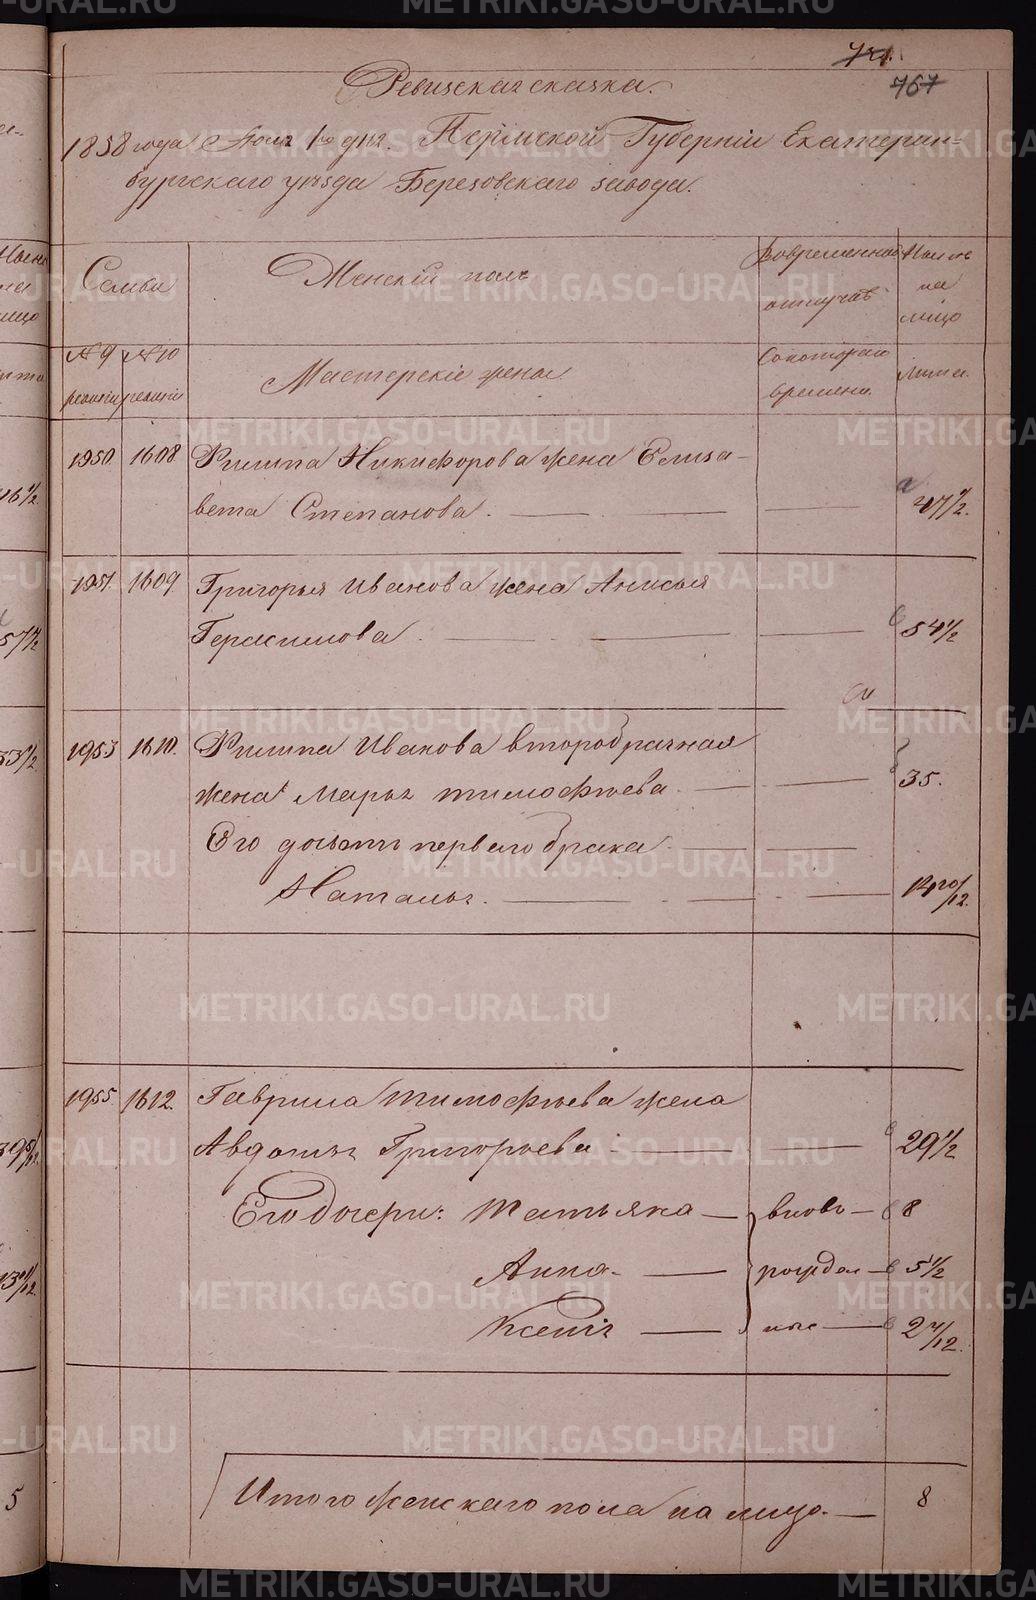 767
Ревизская сказка.
1858 года Июня 1го дня. Пермской Губерніи Екатерин-
бургскаго уѣзда Березовскаго завода.
Семьи
Женскій полъ
Во временной отлучкѣ
Нынѣ на лицо
№ 9 ревизіи
№ 10 ревизіи
Мастерскіе жены
Съ котораго времени.
Лѣта.
1950. 1608 Филипа Никифорова жена Елиза-
вета Степанова. 47 1/2.
1951. 1609 Григорья Иванова жена Анисья
Герасимова. 54 1/2
1953 1610. Филипа Иванова второбрачная
жена Марья Тимофѣева. 35.
Его дочь отъ перваго брака
Наталья. /12.
1955. 1612. Гаврила Тимофѣева жена
Авдотья Григорьева 29 1/2
Его дочери: Татьяна вновь 8
Анна рожден 5 1/2
Ксенія ные 2 /12.
Итого женскаго пола на лицо. 8
5
METRIKI.GASO-URAL.RU